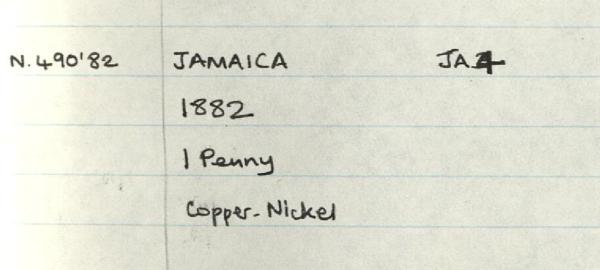 N.490'82 JAMAICA JA4
1882
1 Penny
Copper-Nickel